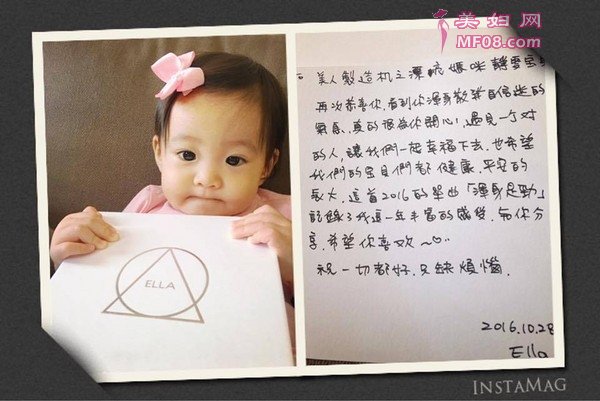 美妇网
MF08.com
ELLA
美人製造机之漂流媽咪轉雪宝
再次恭喜你,看到你渾身散發自信迷的
氣息,真的很為你開心!遇見一个对
的人,讓我們一起幸福下去.也希望
我們的宝貝們都健康.平安的
長大.這首2016的單曲「渾身是勁」
記錄了我這一年丰富的感受.与你分
享.希望你喜欢~♡
祝一切都好.只缺煩惱.
2016.10.28
Ella
INSTAMAG